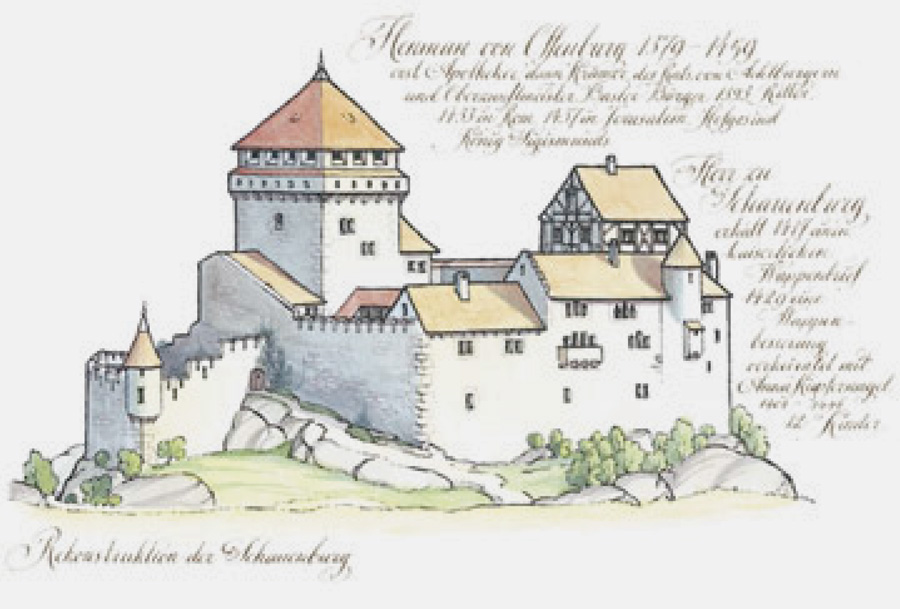 Herman von Offenburg 1379 - 1459
erst Apotheker, dann Krämer, des Rats, von Adelburgern
und Oberzunftmeister Basler Bürger 1393 Ritter
1433 in Rom 1437 in Jerusalem Hofgesind
König Sigismunds
Herr zu
Schauenburg,
erhält 1417 einen
kaiserlichen
Wappenbrief
1429 eine
Wappen-
besserung
verheiratet mit
Anna Kupfernagel
12 Kinder
Rekonstruktion der Schauenburg